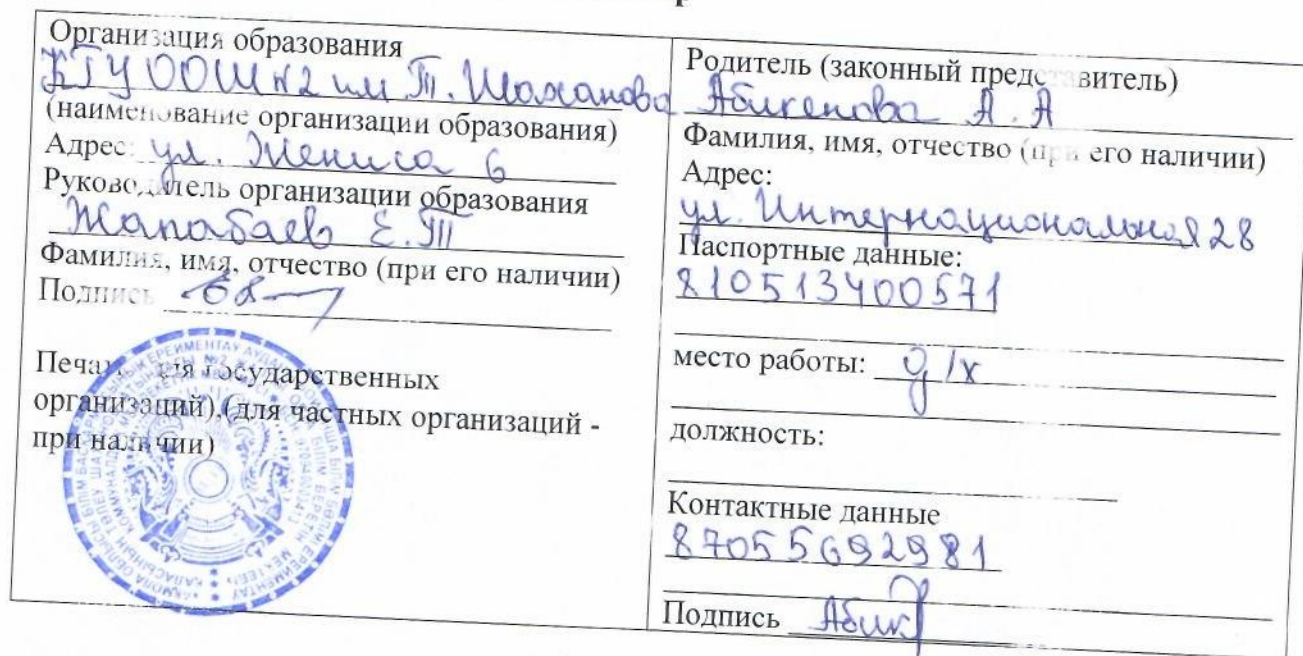 Организация образования
КГУ ООШ №2 им Т. Шаханова
(наименование организации образования)
Адрес: ул. Жениса 6
Руководитель организации образования
Жапабаев Е.Т
Фамилия, имя, отчество (при его наличии)
Подпись
Печать для государственных
организаций),(для частных организаций -
при наличии)
Родитель (законный представитель)
Абикенова А. А
Фамилия, имя, отчество (при его наличии)
Адрес:
ул. Интернациональная 28
Паспортные данные:
810513400571
место работы: д/х
должность:
Контактные данные
87055692981
Подпись Абик